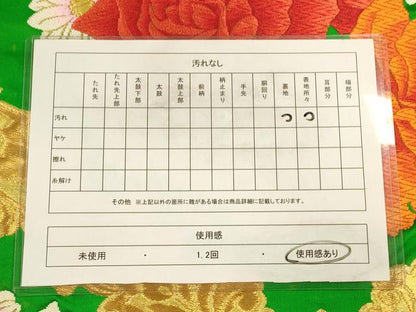 汚れなし
たれ先 たれ先上部 太鼓下部 太鼓 太鼓上部 前柄 柄止まり 手先 胴回り 裏地 表地所々 耳部分 端部分
汚れ つ つ
ヤケ
擦れ
糸解け
その他 ※上記以外の箇所に難がある場合は商品詳細に記載しております。
使用感
未使用 ・ 1.2回 ・ 使用感あり